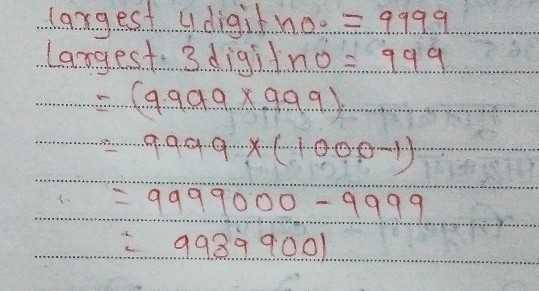 largest 4 digit no. = 9999
Largest 3 digit no = 999
= (9999 × 999)
= 9999 × (1000-1)
= 9999000 - 9999
= 99399001